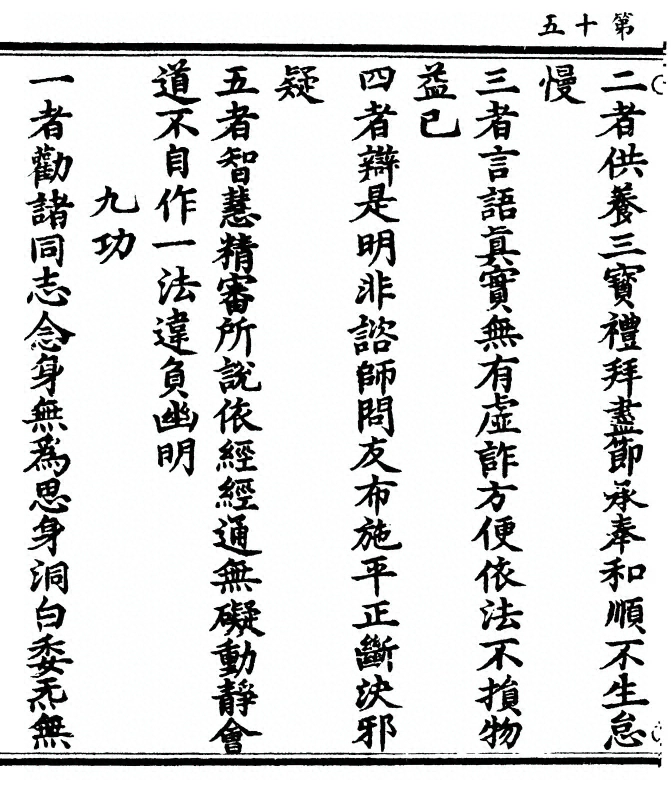 第十五
二者供養三寳禮拜盡節承奉和順不生怠
慢
三者言語眞實無有虛詐方便依法不損物
益已
四者辯是明非諮師問友布施平正斷決邪
疑
五者智慧精審所說依經經通無礙動靜會
道不自作一法違負幽明
九功
一者勸諸同志念身無爲思身洞白委炁無